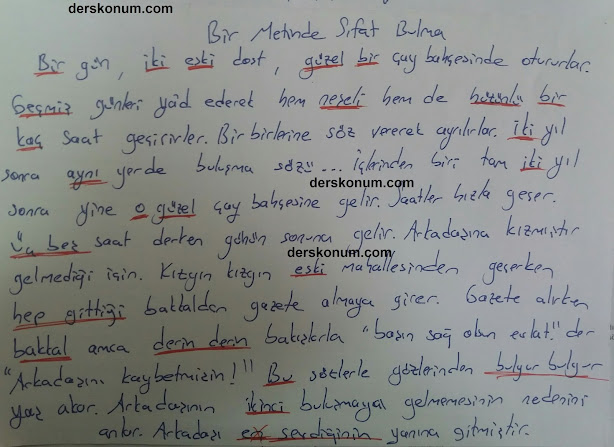 derskonum.com
Bir Metinde Sıfat Bulma
Bir gün, iki eski dost, güzel bir çay bahçesinde otururlar.
Geçmiş günleri yad ederek hem neşeli hem de hüzünlü bir
kaç saat geçirirler. Bir birlerine söz vererek ayrılırlar. iki yıl
sonra aynı yerde buluşma sözü... içlerinden biri tam iki yıl
derskonum.com
sonra yine o güzel çay bahçesine gelir. Saatler hızla geçer.
üç beş saat derken günün sonuna gelir. Arkadaşına kızmıştır
derskonum.com
gelmediği için. Kızgın kızgın eski mahallesinden geçerken
hep gittiği bakkaldan gazete almaya girer. Gazete alırken
bakkal amca derin derin bakışlarla "başın sağ olsun evlat." der
"Arkadaşını kaybetmişin!" Bu sözlerle gözlerinden bulgur bulgur
yaş akar. Arkadaşının ikinci buluşmaya gelmemesinin nedenini
anlar. Arkadaşı en sevdiğinin yanına gitmiştir.